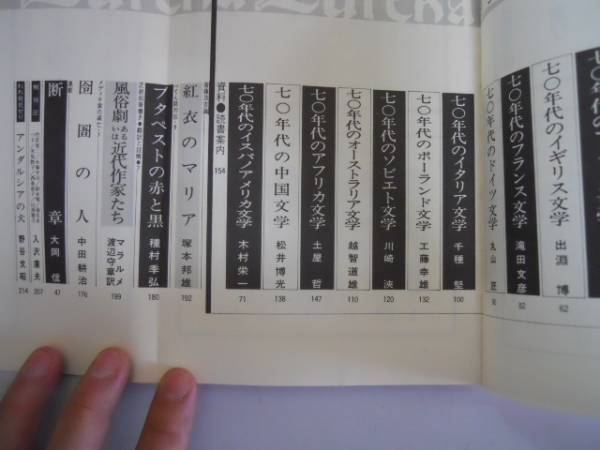 七〇年代のイギリス文学 出淵 博 62
七〇年代のフランス文学 滝田文彦 82
七〇年代のドイツ文学 丸山 匠
七〇年代のイタリア文学 千種 堅 100
七〇年代のポーランド文学 工藤幸雄 132
七〇年代のソビエト文学 川崎 浹 120
七〇年代のオーストラリア文学 越智道雄 110
七〇年代のアフリカ文学 土屋 哲 147
七〇年代の中国文学 松井博光 138
七〇年代のイスパノアメリカ文学 木村栄一 71
資料●読書案内 154
紅衣のマリア 塚本邦雄 192
ブタペストの赤と黒 種村季弘 180
風俗劇あるいは近代作家たち マラルメ 渡辺守章訳 199
囹圄の人 中田耕治 176
断章 大岡 信 47
入沢康夫 207
アンダルシアの犬 野谷文昭 214